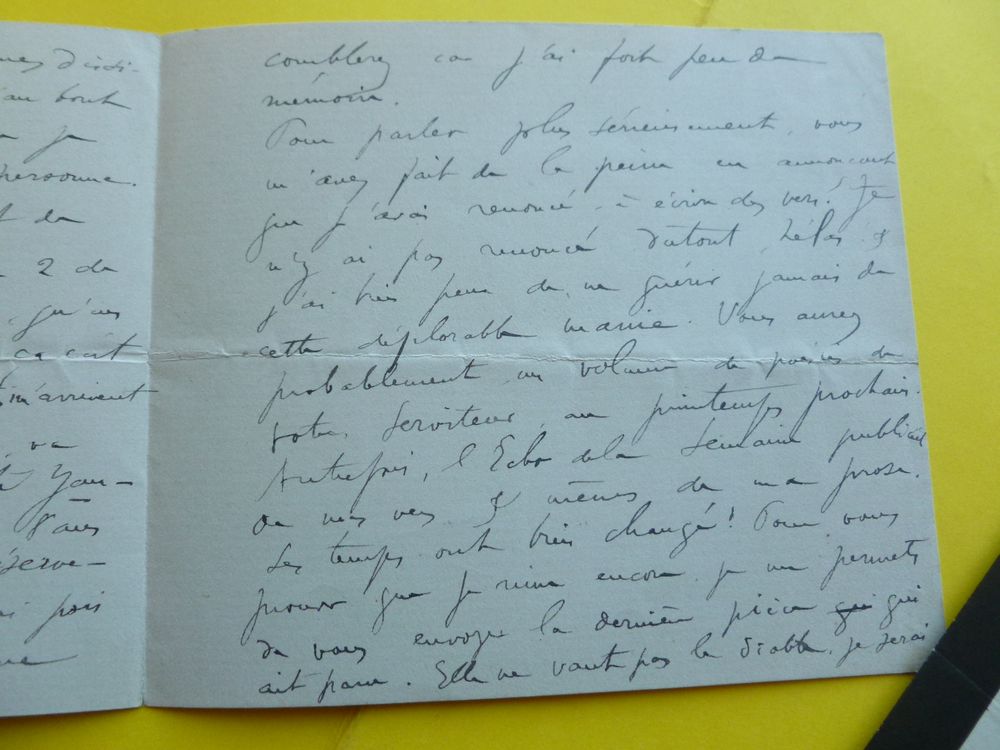 d'indi-
au bout
je
personne.
t de
2 de
qu'un
ça c'est
m'arrivent
va
Yan-
Paris
serve-
pois
comblerez car j'ai fort peu de
mémoire.
Pour parler plus sérieusement, vous
m'avez fait de la peine en annonçant
que j'avais renoncé à écrire des vers! Je
n'y ai pas renoncé dutout, hélas &
j'ai bien peur de ne guérir jamais de
cette déplorable manie. Vous aurez
probablement un volume de poésies de
votre serviteur au printemps prochain.
Autrefois, l'Echo de la Semaine publiait
de mes vers & mêmes de ma prose.
Les temps ont bien changé! Pour vous
prouver que je rime encore je me permets
de vous envoyer la dernière pièce qui qui
ait paru. Elle ne vaut pas le diable, je serai